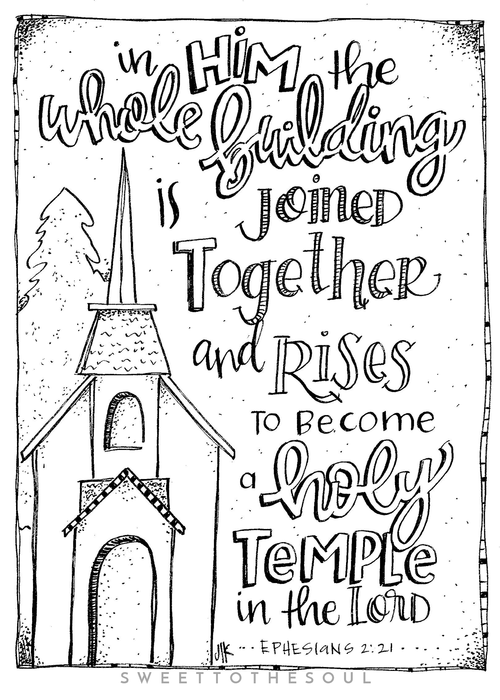 in HiM the
whole building
is joined
Together
and RiSes
To Become
a holy
TeMPLe
in the LorD
JK ... EPHESIANS 2:21 ....
SWEETTOTHESOUL